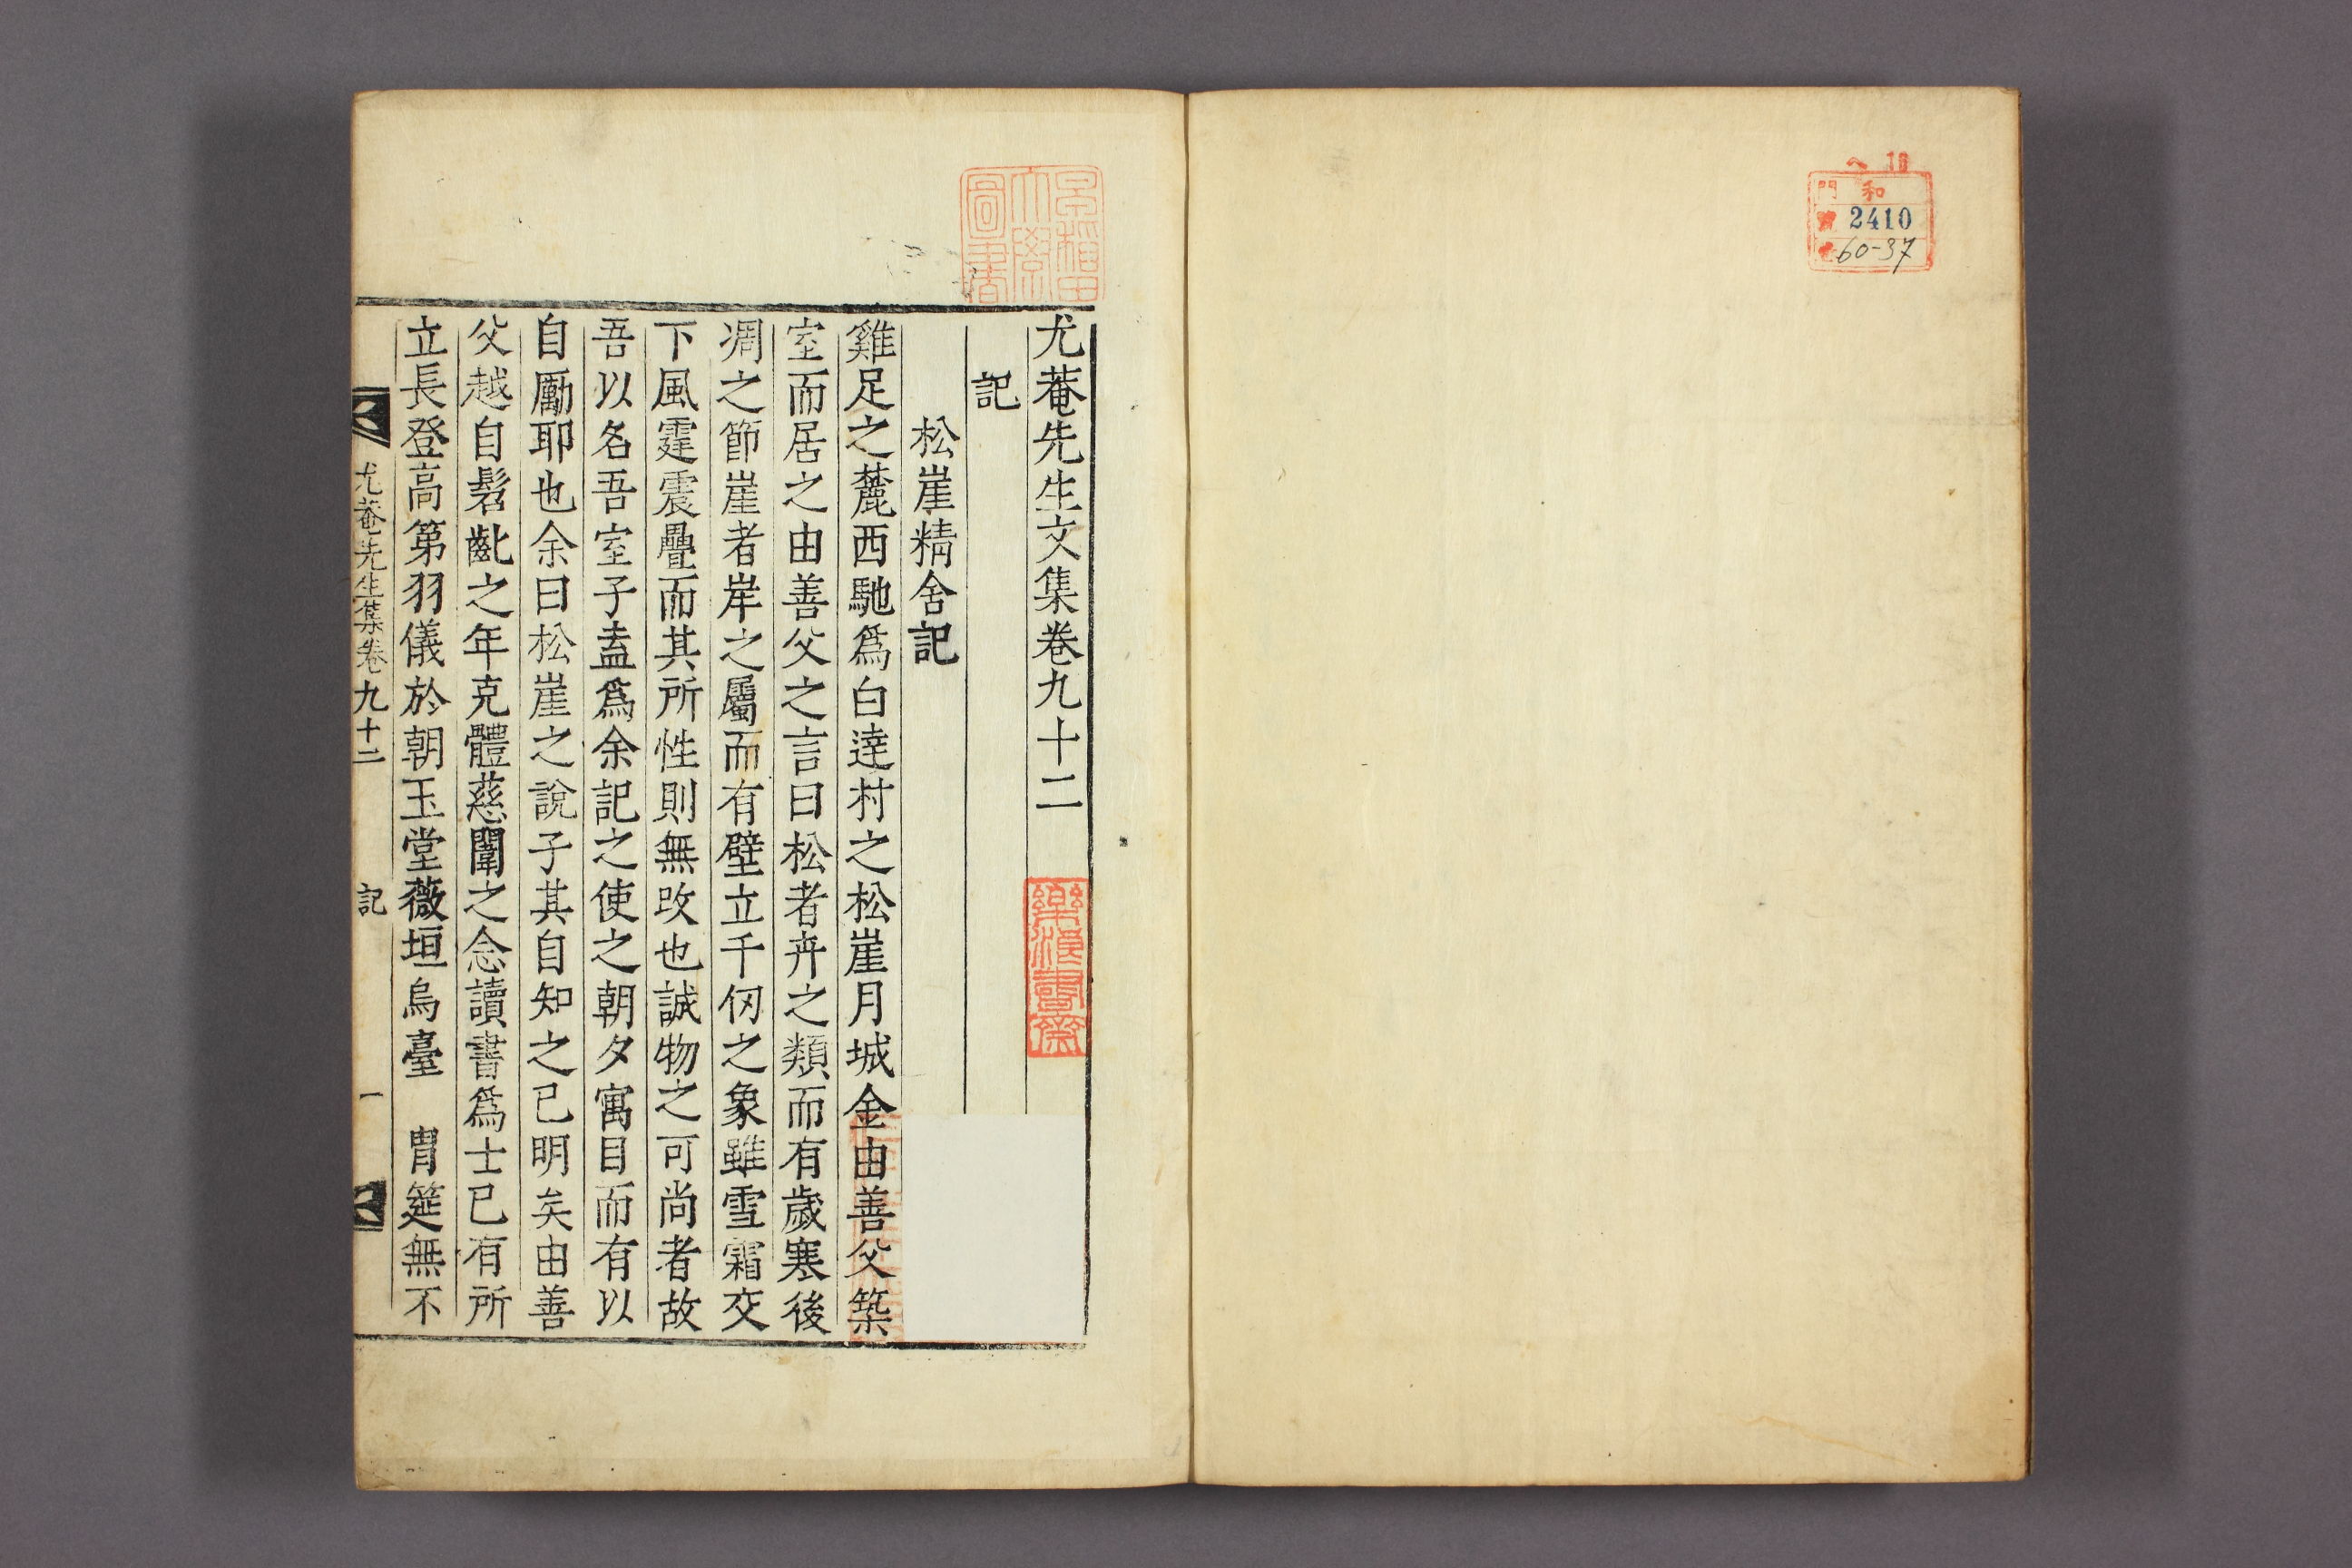 ヘ 16
門 和
號 2410
60-37
早稲田
大學
圖書
尤菴先生文集卷九十二
樂浪書齋
記
松崖精舍記
雞足之麓西馳爲白達村之松崖月城金由善父築
室而居之由善父之言曰松者卉之類而有歲寒後
凋之節崖者岸之屬而有壁立千仞之象雖雪霜交
下風霆震疊而其所性則無改也誠物之可尚者故
吾以名吾室子盍爲余記之使之朝夕寓目而有以
自勵耶也余曰松崖之說子其自知之已明矣由善
父越自髫齔之年克體慈闈之念讀書爲士已有所
立長登高第羽儀於朝玉堂薇垣烏臺 胄筵無不
尤菴先生集卷九十二 記 一